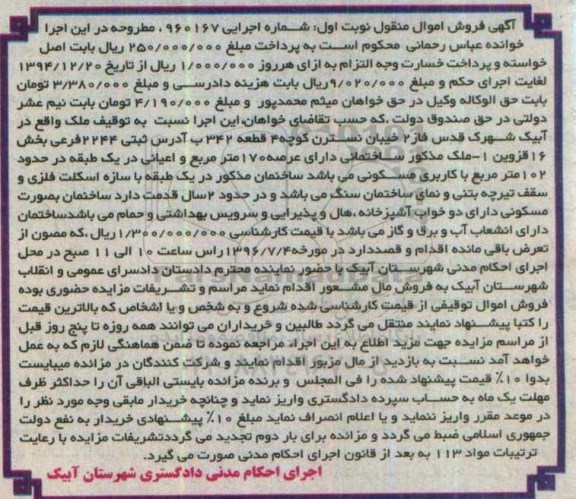 آگهی فروش اموال منقول نوبت اول: شماره اجرایی ۹۶۰۱۶۷ ، مطروحه در این اجرا
خوانده عباس رحمانی محکوم است به پرداخت مبلغ ۲۵۰/۰۰۰/۰۰۰ ریال بابت اصل
خواسته و پرداخت خسارت وجه التزام به ازای هرروز ۱/۰۰۰/۰۰۰ ریال از تاریخ ۱۳۹۴/۱۲/۲۰
لغایت اجرای حکم و مبلغ ۹/۰۲۰/۰۰۰ریال بابت هزینه دادرسی و مبلغ ۳/۳۸۰/۰۰۰ تومان
بابت حق الوکاله وکیل در حق خواهان میثم محمدپور و مبلغ ۴/۱۹۰/۰۰۰ تومان بابت نیم عشر
دولتی در حق صندوق دولت ،که حسب تقاضای خواهان،این اجرا نسبت به توقیف ملک واقع در
آبیک شهرک قدس فاز۲ خیابان نسترن کوچه۴ قطعه ۳۴۲ ب آدرس ثبتی ۲۲۴۴فرعی بخش
۱۶قزوین ۱-ملک مذکور ساختمانی دارای عرصه۱۷۰متر مربع و اعیانی در یک طبقه در حدود
۱۰۲متر مربع با کاربری مسکونی می باشد ساختمان مذکور در یک طبقه با سازه اسکلت فلزی و
سقف تیرچه بتنی و نمای ساختمان سنگ می باشد و در حدود ۲سال قدمت دارد ساختمان بصورت
مسکونی دارای دو خواب آشپزخانه ،هال و پذیرایی و سرویس بهداشتی و حمام می باشدساختمان
دارای انشعاب آب و برق و گاز می باشد با قیمت کارشناسی ۱/۳۰۰/۰۰۰/۰۰۰ریال،که مصون از
تعرض باقی مانده اقدام و قصددارد در مورخه۱۳۹۶/۷/۴راس ساعت ۱۰ الی ۱۱ صبح در محل
اجرای احکام مدنی شهرستان آبیک با حضور نماینده محترم دادستان دادسرای عمومی و انقلاب
شهرستان آبیک به فروش مال مشعور اقدام نماید مراسم و تشریفات مزایده حضوری بوده
فروش اموال توقیفی از قیمت کارشناسی شده شروع و به شخص و یا اشخاص که بالاترین قیمت
را کتبا پیشنهاد نمایند منتقل می گردد طالبین و خریداران می توانند همه روزه تا پنج روز قبل
از مراسم مزایده جهت مزید اطلاع به این اجراء مراجعه نموده تا ضمن هماهنگی لازم که به عمل
خواهد آمد نسبت به بازدید از مال مزبور اقدام نمایند و شرکت کنندگان در مزایده میبایست
بدوا ۱۰٪ قیمت پیشنهاد شده را فی المجلس و برنده مزایده بایستی الباقی آن را حداکثر ظرف
مهلت یک ماه به حساب سپرده دادگستری واریز نماید و چنانچه خریدار مابقی وجه مورد نظر را
در موعد مقرر واریز ننماید و یا اعلام انصراف نماید مبلغ ۱۰٪ پیشنهادی خریدار به نفع دولت
جمهوری اسلامی ضبط می گردد و مزایده برای بار دوم تجدید می گرددتشریفات مزایده با رعایت
ترتیبات مواد ۱۱۳ به بعد از قانون اجرای احکام مدنی صورت می گیرد.
اجرای احکام مدنی دادگستری شهرستان آبیک